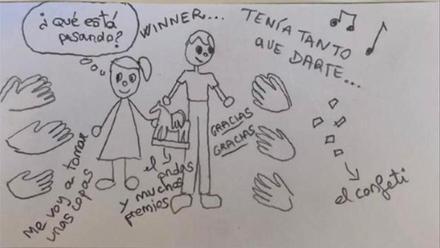 ¿Qué está
pasando?
WINNER...
TENÍA TANTO
QUE DARTE...
GRACIAS
GRACIAS
Me voy a tomar
unas copas
el pndas
y muchos
premios
el confeti